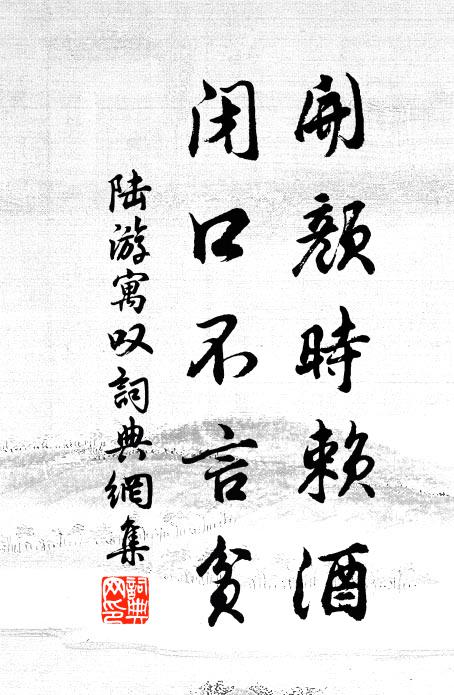 開顏時賴酒
闭口不言貧
陆游寓叹詞典網集
詞典网印